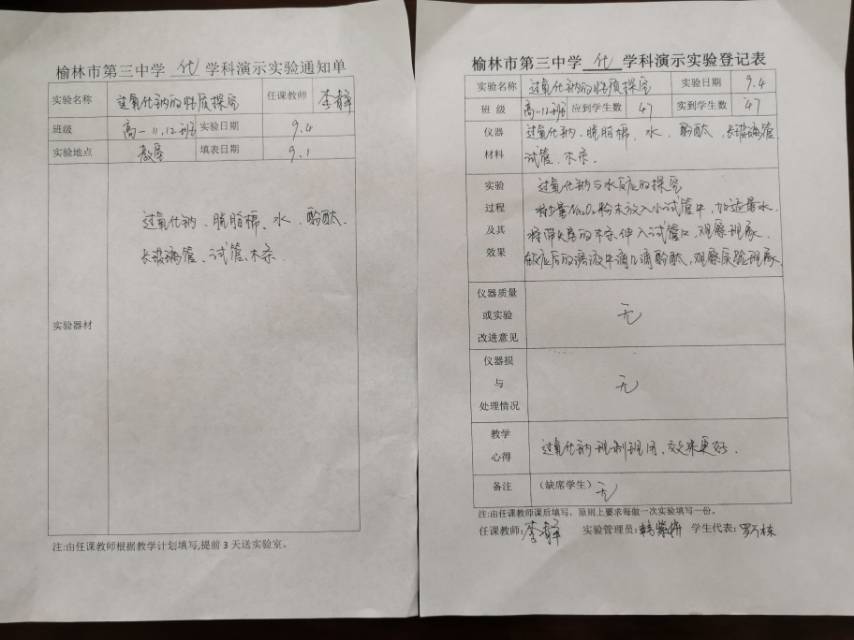 榆林市第三中学 化 学科演示实验通知单
实验名称 过氧化钠的性质探究 任课教师
班级 高一 11,12班 实验日期 9.4
实验地点 教室 填表日期 9.1
过氧化钠、脱脂棉、水、酚酞、
长玻璃管、试管、木条。
实验器材
注:由任课教师根据教学计划填写,提前3天送实验室。
榆林市第三中学 化 学科演示实验登记表
实验名称 过氧化钠的性质探究 实验日期 9.4
班 级 高一12班 应到学生数 47 实到学生数 47
仪器 过氧化钠、脱脂棉、水、酚酞、长玻璃管、
材料 试管、木条。
实验 过氧化钠与水反应的探究
过程 将少量Na₂O₂粉末放入小试管中,加适量水,
及其 将带火星的木条伸入试管口,观察现象,
效果 反应后的溶液中滴几滴酚酞,观察实验现象
仪器质量
或实验 无
改进意见
仪器损
与 无
处理情况
教学
心得 过氧化钠现制现用,效果更好。
备注 (缺席学生) 无
注:由任课教师课后填写,原则上要求每做一次实验填写一份。
任课教师: 实验管理员: 学生代表: